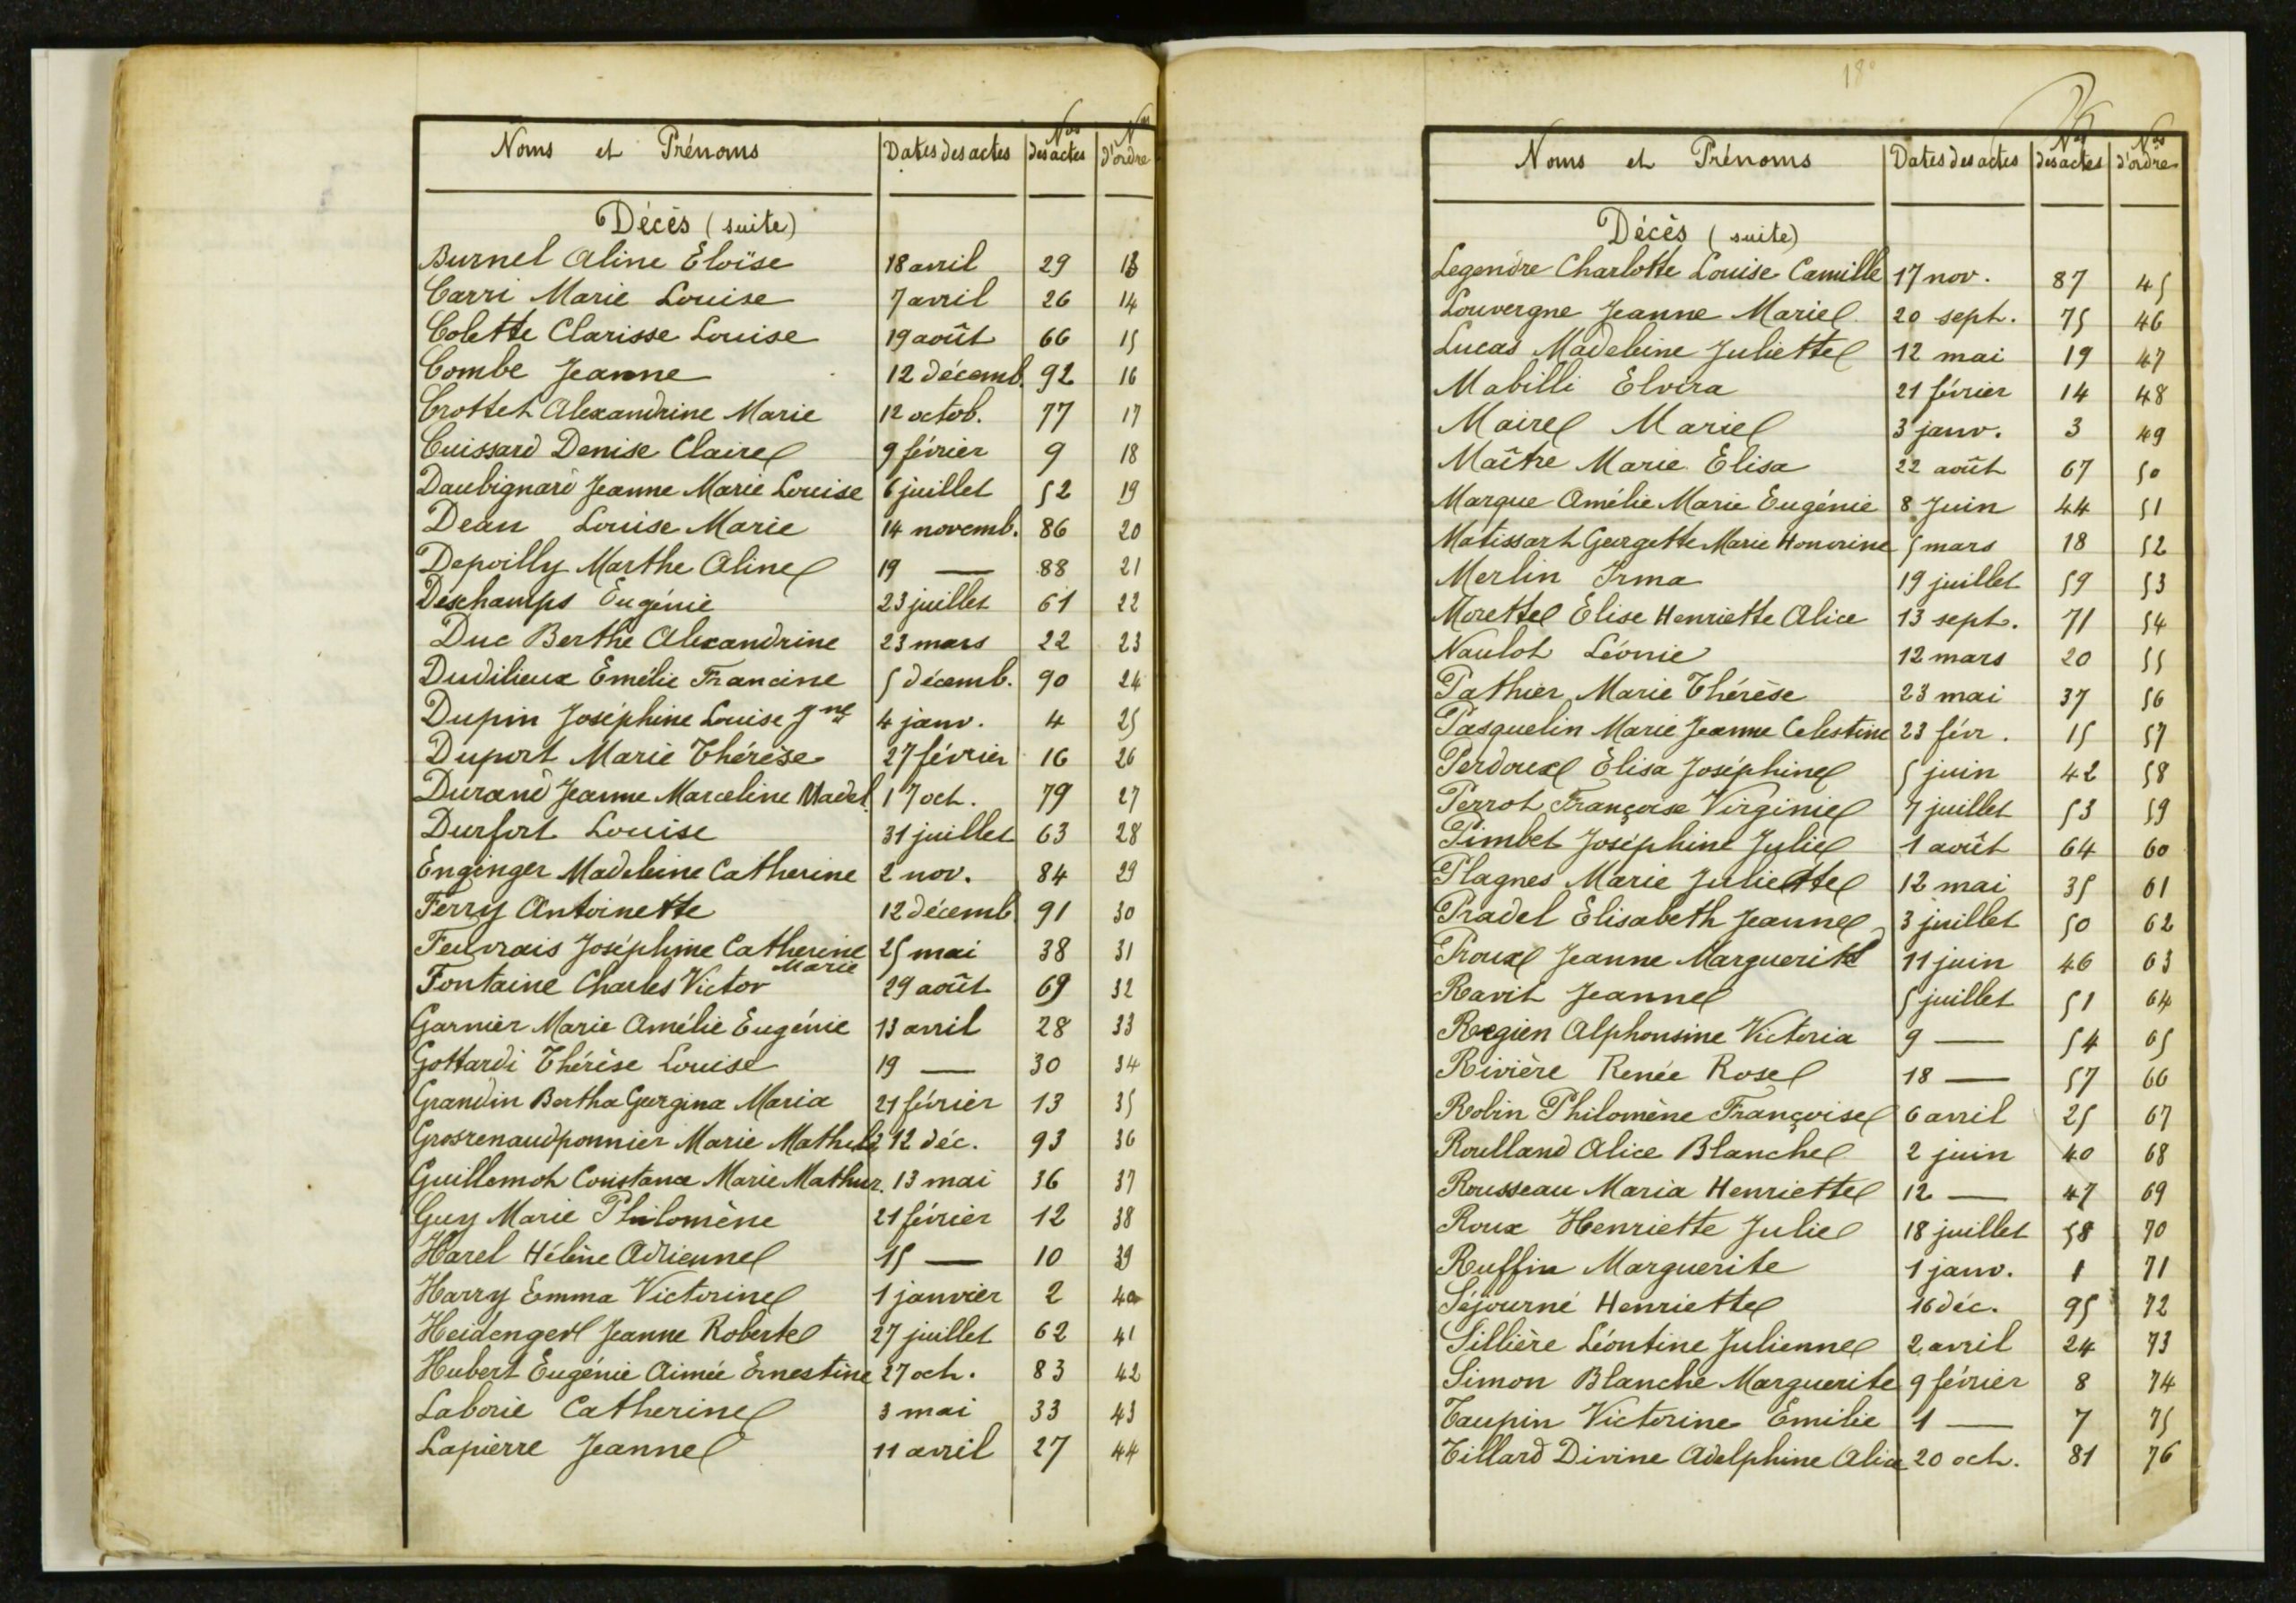 Noms et Prénoms Dates des actes Nos des actes Nos d'ordre
Décès (suite)
Burnel Aline Eloïse 18 avril 29 13
Carri Marie Louise 7 avril 26 14
Colette Clarisse Louise 19 août 66 15
Combe Jeanne 12 décemb. 92 16
Crottet Alexandrine Marie 12 octob. 77 17
Cuissard Denise Claire 9 février 9 18
Daubignard Jeanne Marie Louise 6 juillet 52 19
Dean Louise Marie 14 novemb. 86 20
Depoilly Marthe Aline 19 — 88 21
Deschamps Eugénie 23 juillet 61 22
Duc Berthe Alexandrine 23 mars 22 23
Dudilieux Emélie Francine 5 décemb. 90 24
Dupin Joséphine Louise Jne 4 janv. 4 25
Duport Marie Thérèse 27 février 16 26
Durand Jeanne Marceline Madel. 17 oct. 79 27
Durfort Louise 31 juillet 63 28
Enginger Madeleine Catherine 2 nov. 84 29
Ferry Antoinette 12 décemb. 91 30
Feuvrais Joséphine Catherine 25 mai 38 31
Marie
Fontaine Charles Victor 29 août 69 32
Garnier Marie Amélie Eugénie 13 avril 28 33
Gottardi Thérèse Louise 19 — 30 34
Grandin Bertha Georgina Maria 21 février 13 35
Grosrenaudponnier Marie Mathilde 12 déc. 93 36
Guillemot Constance Marie Mathur. 13 mai 36 37
Guy Marie Philomène 21 février 12 38
Harel Hélène Adrienne 15 — 10 39
Harry Emma Victorine 1 janvier 2 40
Heidengerl Jeanne Roberte 27 juillet 62 41
Hubert Eugénie Aimée Ernestine 27 oct. 83 42
Laborie Catherine 3 mai 33 43
Lapierre Jeanne 11 avril 27 44
18
Noms et Prénoms Dates des actes Nos des actes Nos d'ordre
Décès (suite)
Legendre Charlotte Louise Camille 17 nov. 87 45
Louvergne Jeanne Marie 20 sept. 75 46
Lucas Madeleine Juliette 12 mai 19 47
Mabilli Elvira 21 février 14 48
Maire Marie 3 janv. 3 49
Maître Marie Elisa 22 août 67 50
Marque Amélie Marie Eugénie 8 Juin 44 51
Matissart Georgette Marie Honorine 5 mars 18 52
Merlin Irma 19 juillet 59 53
Morette Elise Henriette Alice 13 sept. 71 54
Naulot Léonie 12 mars 20 55
Pathier Marie Thérèse 23 mai 37 56
Pasquelin Marie Jeanne Celestine 23 févr. 15 57
Perdoux Élisa Joséphine 5 juin 42 58
Perrot Françoise Virginie 7 juillet 53 59
Pimbet Joséphine Julie 1 août 64 60
Plagnes Marie Juliette 12 mai 35 61
Pradel Elisabeth Jeanne 3 juillet 50 62
Proux Jeanne Marguerite 11 juin 46 63
Ravit Jeanne 5 juillet 51 64
Regien Alphonsine Victoria 9 — 54 65
Rivière Renée Rose 18 — 57 66
Robin Philomène Françoise 6 avril 25 67
Roulland Alice Blanche 2 juin 40 68
Rousseau Maria Henriette 12 — 47 69
Roux Henriette Julie 18 juillet 58 70
Ruffin Marguerite 1 janv. 1 71
Séjourné Henriette 16 déc. 95 72
Sillière Léontine Julienne 2 avril 24 73
Simon Blanche Marguerite 9 février 8 74
Taupin Victorine Emilie 1 — 7 75
Tillard Divine Adelphine Alice 20 oct. 81 76